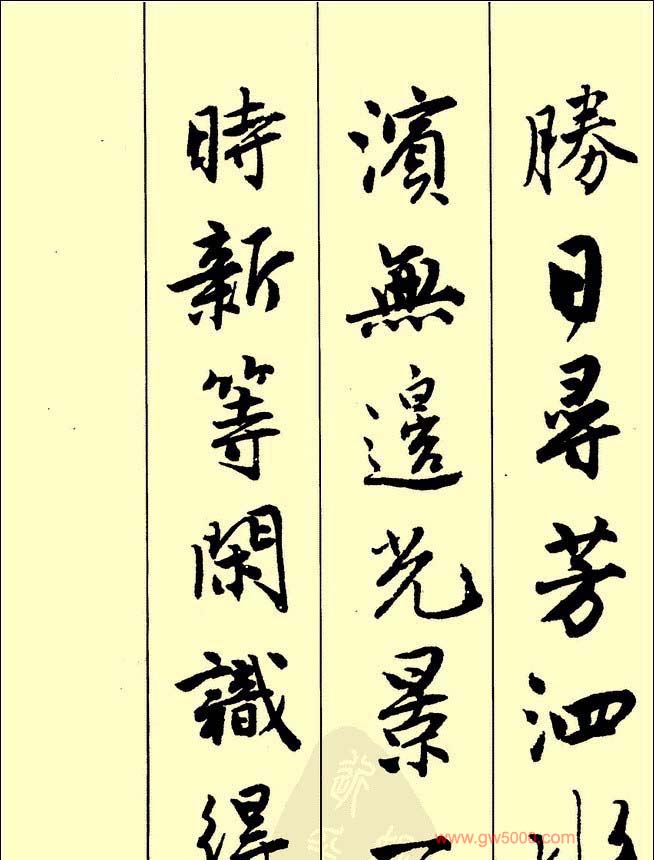 勝日尋芳泗水
濱無邊光景一
時新等閑識得
www.gw5000.com